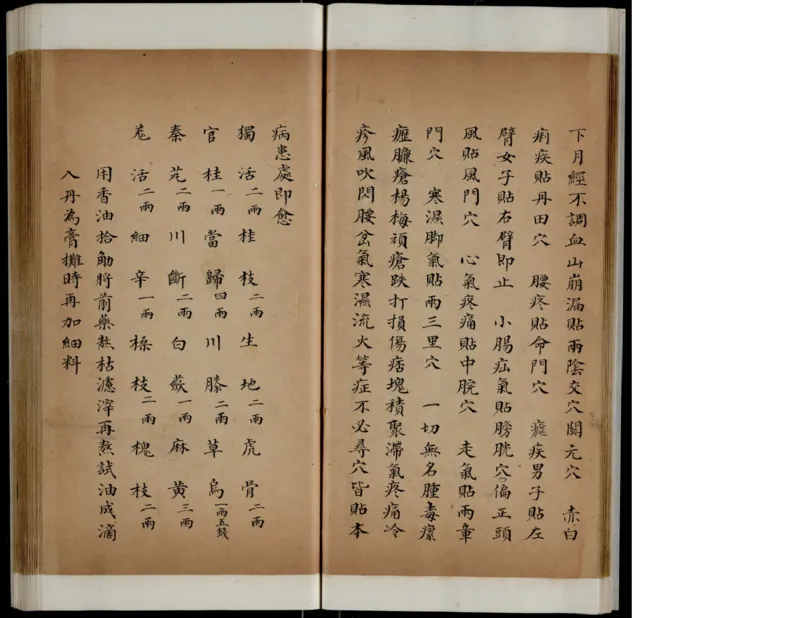 下月經不調血山崩漏貼兩陰交穴關元穴　赤白
痢疾貼丹田穴　腰疼貼命門穴　瘧疾男子貼左
臂女子貼右臂即止　小腸疝氣貼膀胱穴偏正頭
風貼風門穴　心氣疼痛貼中脘穴　走氣貼兩章
門穴　寒濕脚氣貼兩三里穴　一切無名腫毒瘰
癧臁瘡楊梅頑瘡跌打損傷痞塊積聚滯氣疼痛冷
疼風吹閃腰岔氣寒濕流火等症不必尋穴皆貼本
病患處即愈
獨活二兩桂枝二兩生地二兩虎骨二兩
官桂一兩當歸四兩川膝二兩草烏一兩五錢
秦艽二兩川斷二兩白蘞一兩麻黃三兩
羌活二兩細辛一兩桑枝二兩槐枝二兩
用香油拾觔將前藥熬枯濾滓再熬試油成滴
入丹為膏攤時再加細料